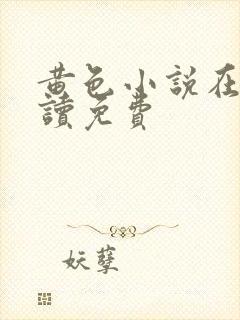 黃色小說在
讀免費
妖孽